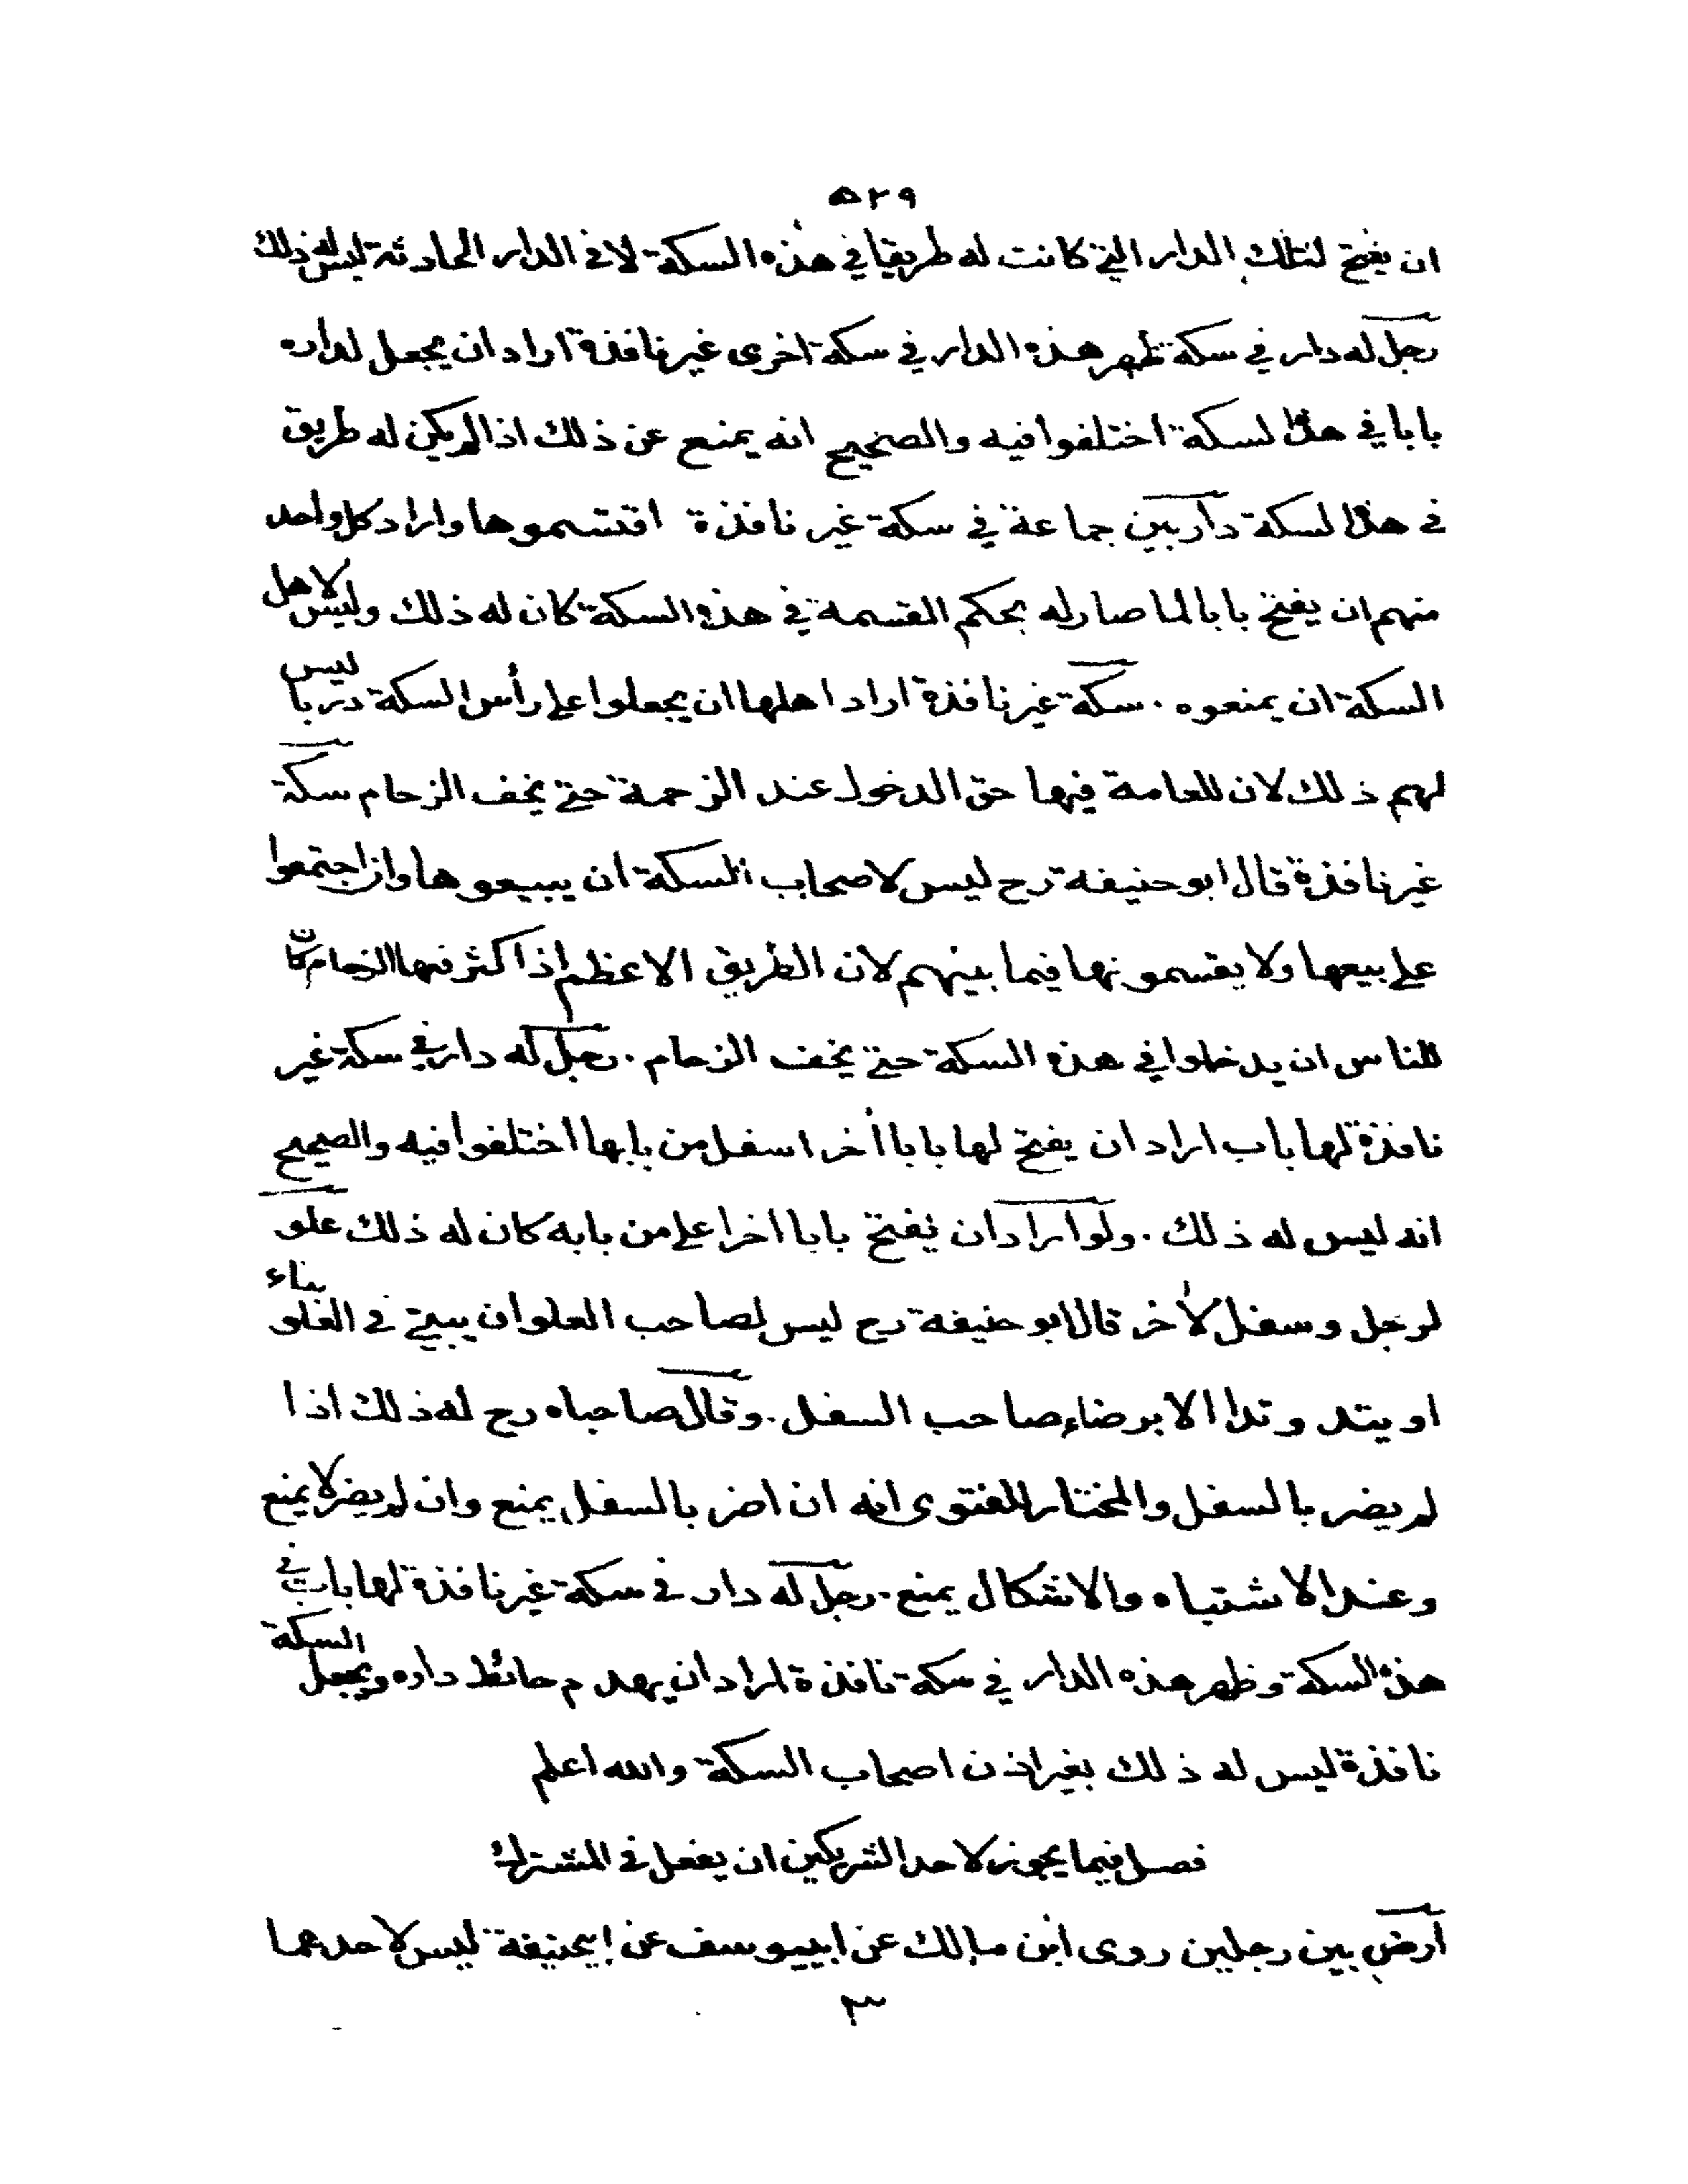 ٥٢٩
ان يفتح لتلك الدار التي كانت له طريقا في هذه السكة لا في الدار الحادثة ليس له ذلك
رجل له دار في سكة ظهر هذه الدار في سكة اخرى غير نافذة اراد ان يجعل لداره
بابا في هذه السكة اختلفوا فيه والصحيح انه يمنع عن ذلك اذا لم يكن له طريق
في هذه السكة دار بين جماعة في سكة غير نافذة اقتسموها واراد كل واحد
منهم ان يفتح بابا لما صار له بحكم القسمة في هذه السكة كان له ذلك وليس لاهل
السكة ان يمنعوه . سكة غير نافذة اراد اهلها ان يجعلوا على رأس السكة دربا ليس
لهم ذلك لان للعامة فيها حق الدخول عند الزحمة حتى يخف الزحام سكة
غير نافذة قال ابو حنيفة رح ليس لاصحاب السكة ان يبيعوها وان اجتمعوا
على بيعها ولا يقسمونها فيما بينهم لان الطريق الاعظم اذا كثر فيها الزحام كان
للناس ان يدخلوا في هذه السكة حتى يخف الزحام . رجل له دار في سكة غير
نافذة لها باب اراد ان يفتح لها بابا أخر اسفل من بابها اختلفوا فيه والصحيح
انه ليس له ذلك . ولو اراد ان يفتح بابا اخر اعلى من بابه كان له ذلك علو
لرجل وسفل لأخر قال ابو حنيفة رح ليس لصاحب العلو ان يبني في العلو بناء
او يتد وتدا الا برضاء صاحب السفل . وقال صاحباه رح له ذلك اذا
لم يضر بالسفل والمختار للفتوى انه ان اضر بالسفل يمنع وان لم يضر لا يمنع
وعند الاشتباه والاشكال يمنع . رجل له دار في سكة غير نافذة لها باب في
هذه السكة وظهر هذه الدار في سكة نافذة اراد ان يهدم حائط داره ويجعل السكة
نافذة ليس له ذلك بغير اذن اصحاب السكة والله اعلم
فصل فيما يجوز لاحد الشريكين ان يفعل في المشترك
أرض بين رجلين روى ابن مالك عن ابي يوسف عن ابي حنيفة ليس لاحدهما